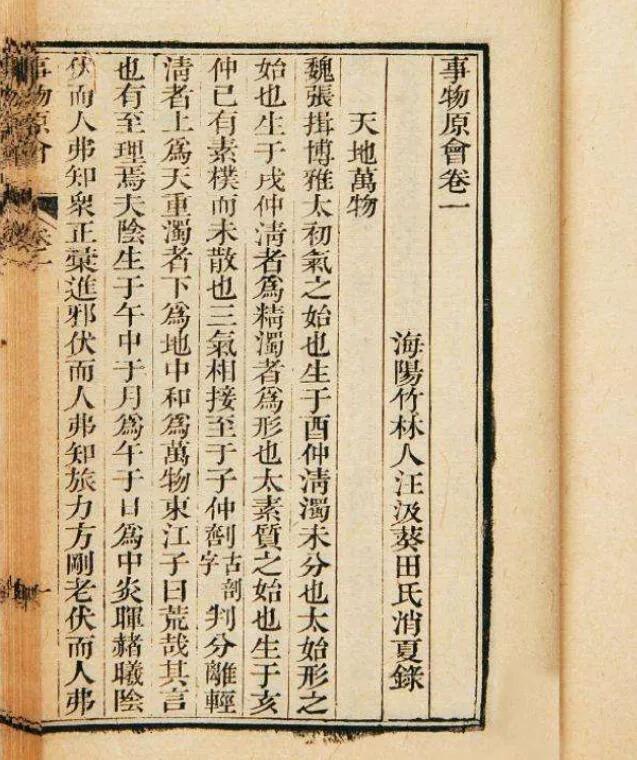 事物原會卷一
海陽竹林人汪汲葵田氏消夏錄
天地萬物
魏張揖博雅太初氣之始也生于酉仲淸濁未分也太始形之
始也生于戌仲淸者爲精濁者爲形也太素質之始也生于亥
仲已有素樸而未散也三氣相接至于子仲劄古剖字判分離輕
淸者上爲天重濁者下爲地中和爲萬物東江子曰荒哉其言
也有至理焉夫陰生于午中于月爲午于日爲中炎暉赭曦陰
伏而人弗知衆正彙進邪伏而人弗知旅力方剛老伏而人弗
事物原會
卷一
一